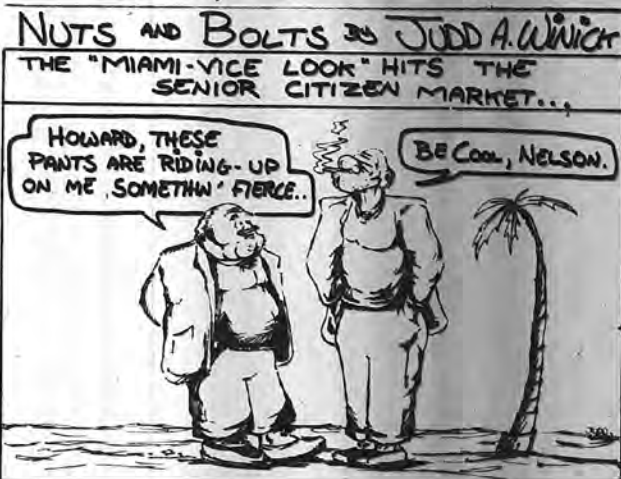 NUTS AND BOLTS BY JUDD A. WINICK
THE "MIAMI-VICE LOOK" HITS THE
SENIOR CITIZEN MARKET...
HOWARD, THESE
PANTS ARE RIDING-UP
ON ME SOMETHIN' FIERCE..
BE COOL, NELSON.